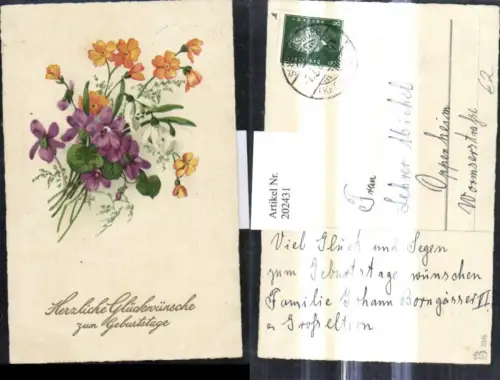 Herzliche Glückwünsche
zum Geburtstage
Artikel Nr.
202431
8
Frau
Lehrer Michel
Oppenheim
Wormserstraße
62
Viel Glück und Segen
zum Geburtstage wünschen
Familie Johann Borngässer II
u Großeltern